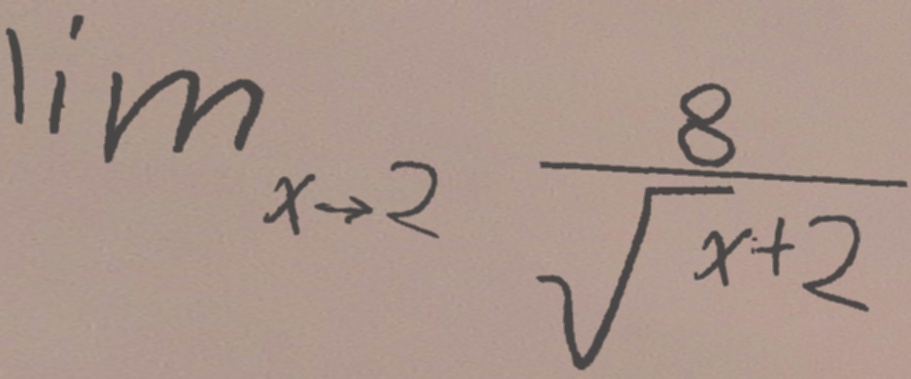 lim x→2 8/√x+2